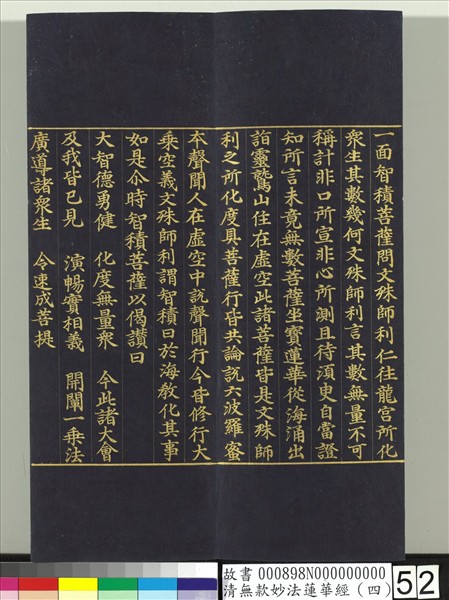 一面智積菩薩問文殊師利仁往龍宮所化
衆生其數幾何文殊師利言其數無量不可
稱計非口所宣非心所測且待須臾自當證
知所言未竟無數菩薩坐寶蓮華從海涌出
詣靈鷲山住在虛空此諸菩薩皆是文殊師
利之所化度具菩薩行皆共論說六波羅蜜
本聲聞人在虛空中說聲聞行今皆修行大
乘空義文殊師利謂智積曰於海教化其事
如是尒時智積菩薩以偈讚曰
大智德勇健 化度無量衆 今此諸大會
及我皆已見 演暢實相義 開闡一乘法
廣導諸衆生 令速成菩提
故書 000898N000000000
清無款妙法蓮華經(四)
52